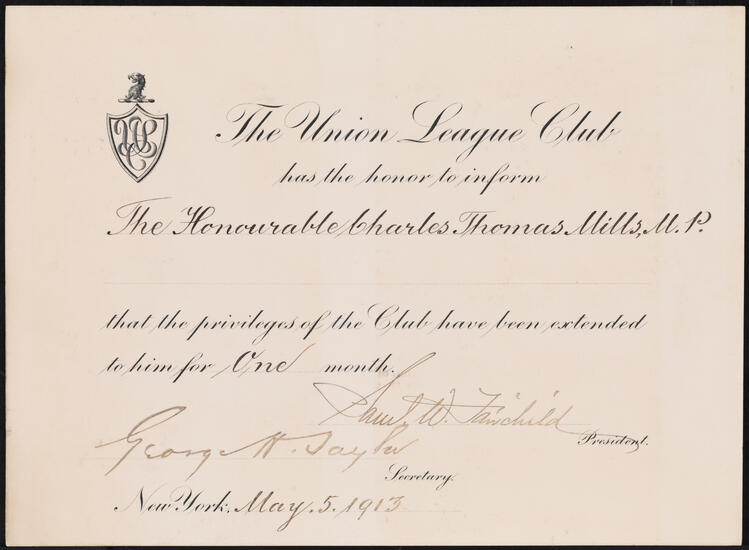 ULC
The Union League Club
has the honor to inform
The Honourable Charles Thomas Mills, M.P.
that the privileges of the Club have been extended
to him for One month.
Saml W. Fairchild
President.
George H. Taylor
Secretary.
New York, May. 5. 1913